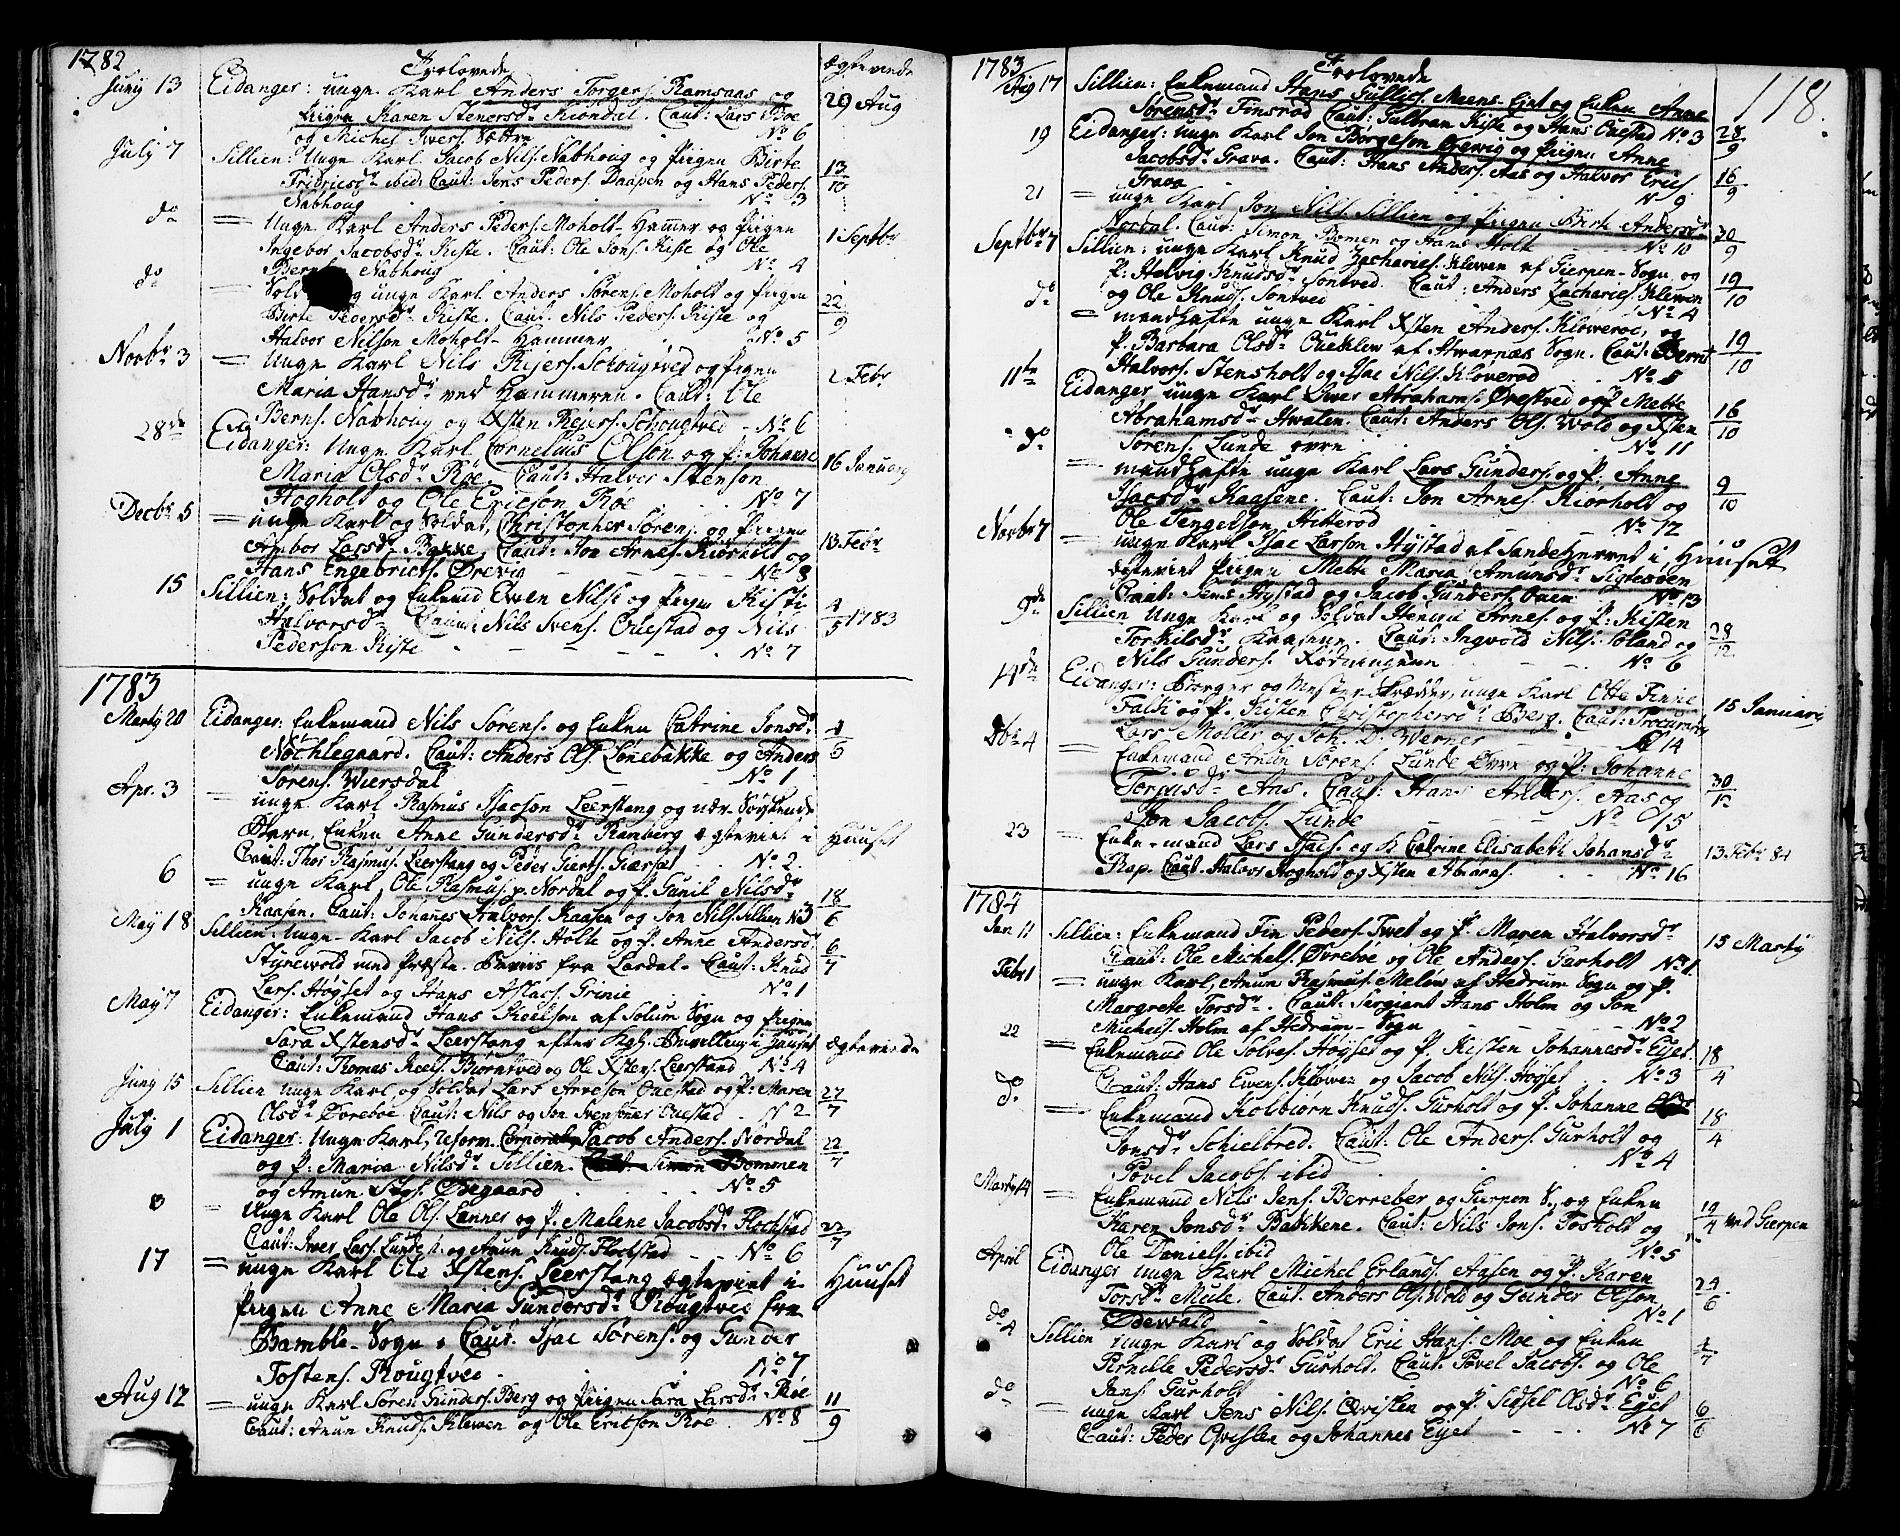 1782
Trolovede
ægteviede
Juny 13 Eidanger: unge Karl Anders Torgers. Ramsaas og 29 Aug
pigen Karen Stenersdr Kiøndal. Caut: Lars Boe
og Michel Ivers. No 6
July 7 Sillien: Unge Karl Jacob Nils. Nabhoug og pigen Birte 13/10
Fridricsdr ibid: Caut: Jens Peders. Daapen og Hans Peders.
Nabhoug No 3
do = Unge Karl Anders Peders. Moholt-Hamer og pigen 1 Septbr
Ingebor Jacobsdr Kiste. Caut: Ole Jons. Kiste og Ole
Nabhoug No 4
do = og unge Karl Anders Sørens. Moholt og pigen 22/9
Birte Pedersdr Kiste. Caut. Nils Peders. Kiste og
Halvor Nilson Moholt-Hammer No 5
Novbr 3 = Unge Karl Nils Reiers. Schougtved og pigen 2 Febr
Maria Hansdr ved Hammeren. Caut: Ole
Berns. Navhoug og Xsten Reiers. Schougtved - No 6
28de Eidanger: Unge Karl Cornelius Olson og p: Johanne 16 January
Maria Olsdr Røe. Caut: Halvor Stenson
Hogholt og Ole Ericson Roe No 7
Decbr 5 = unge Karl og Soldat, Christopher Sørens. og pigen 13 Febr
Ambor Larsdr Bakke, Caut: Jon Arnes. Kiorholt og
Hans Engebricts. Ørevig No 8
15 Sillien: Soldat og Enkemd Even Nils. og pigen Kisti 4/5 1783
Halvorsdr Caut: Nils Svens. Ouestad og Nils
Pederson Kiste No 7
1783
Marty 20 Eidanger: Enkemand Nils Sørens. og Enken Catrine Jonsdr
Nøchlegaard. Caut: Anders Ols. Lønebakke og Anders
Sørens. Wiersdal No 1
Apr. 3 = unge Karl Rasmus Isacson Leerstang og
Enken Anne Gundersdr Ramberg ægteviet i Huuset
Caut: Thor Rasmus. Leerstang og Peder No 2
6 = unge Karl, Ole Rasmus. Nordal og p. Gunil Nilsdr 18/6
Kaasen. Caut: Johanes Halvors. Kaasen og Jon Nils. Sillien No 3
May 18 Sillien: Unge Karl Jacob Nils. Holte og p. Anne Andersdr 6/7
Styrevold med Præste-Beviis fra Lardal. Caut: Knud
Lars. Høyset og Hans Aslacs. Grinie No 1
May 7 Eidanger: Enkemand Hans Kielson af Solum Sogn og pigen
Sara Xstensdr Leerstang efter Kgl. Bevilling i Huuset ægteviede
Caut: Thomas Kiels. Biørntved og Ole Xstens. Leerstang No 4
Juny 15 Sillien unge Karl og Soldat Lars Arveson Ouestad og p: Maren 27/7
Olsdr Øvreboe Caut: Nils og Jon Svensøner Ouestad No 2
July 1 Eidanger: Unge Karl, reform. Corporal Jacob Anders. Nordal 22/7
og p. Maria Nilsdr Sillien. Caut: Simon Bommen
og Amun Ødegaard No 5
= Unge Karl Ole Ols. Lanner og p. Malene Jacobsdr Flochstad 22/7
Caut: Iver Lars. Lunde og Amun Knuds. Flochstad No 6
17 = unge Karl Ole Xstens. Leerstang ægteviet i Huuset
pigen Anne Maria Gundersdr Rougtvet fra
Bamble-Sogn. Caut. Isac Sørens. og Gunder
Tostens. Rougtvee No 7
Aug 12 = unge Karl Søren Gunders. Berg og pigen Sara Larsdr Røe 11/9
Caut: Amun Knuds. Klewen og Ole Ericson Roe No 8
1783
Trolovede
118.
Aug 17 Sillien: Enkemand Hans Eiet og Enken Anne
Sørensdr Finsrød Caut: Kiste og Hans Ouestad No 3 28/9
19 Eidanger: unge Karl Jon Børgeson Ørevig og pigen Anne
Jacobsdr Grava. Caut: Hans Anders. Aas og Halvor Erics 16/9
Grava No 9
21 = unge Karl Jon Nils. Sillien og pigen Birte Andersdr
Nordal. Caut: Simon Bomen og Hans Holt No 10 30/9
Septbr 7 Sillien: unge Karl Knud Zacharies. Klewen af Gierpen-Sogn og
p: Helvig Knudsdr Sontved. Caut: Anders Zacharies. Klewen 19/10
og Ole Knuds. Sontved No 4
do = mandhafte unge Karl Xsten Anders. Kløverøe, og
p. Barbara Olsdr Ouestlen af Hvarnæs Sogn. Caut: Bernt 19/10
Halvors. Stensholt og Isac Nils. Kløverød No 5
11te Eidanger unge Karl Iver Abrahams. Ørestved og p Mette
Abrahamsdr Hvalen. Caut: Anders Ols. Wold og Xsten 16/10
Sørens. Lunde øvre No 11
do = mandhafte unge Karl Lars Gunders. og p. Anne
Isacsdr Kaasene. Caut: Jon Arnes. Kiorholt og 9/10
Ole Tengelson Hitterød No 12
Novbr 7 = unge Karl Isac Larson Hystad af Sandeherred i Huuset
ægteviet pigen Mette Maria Amunsdr Sigtesøen
Caut: Jens Hystad og Jacob Gunders. Ouen No 13
9de Sillien Unge Karl og Soldat Arnes. og p: Kisten
Torkilsdr Kaasene. Caut: Ingvold Nils. Poland og 28/12
Nils Gunders. No 6
14de Eidanger: Borger og Mester Skrædder, unge Karl Otte Finne
Falck og p. Kisten Christophersdr Berg. Caut: Procurator 15 January
Lars Møller og Joh. D. Werner No 14
Dbr 4 = Enkemand Amun Sørens. Lunde Øvre og p: Johanne
Torgusdr Aas. Caut: Hans Anders. Aas og 30/12
Jon Jacobs. Lunde No 15
23 = Enke-mand Lars Isacs. og Catrine Elisabeth Johansdr
Rap. Caut. Halvor Hoghold og Xsten No 16 13 Febr 84
1784
Jan 11 Sillien: Enkemand Fin Peders. Tvet og p. Maren Halvorsdr 15 Marty
Caut: Ole Michels. Øvreboe og Ole Anders. Gurholt No 1
Febr 1 = unge Karl, Amun Rasmus. Meløe af Hedrum Sogn og p.
Margrete Torsdr Caut: Sergiant Hans Holm og Jon
Michels. Holm af Hedrum-Sogn No 2
22 = Enkemand Ole Solves. Høyset og p. Kisten Johannesdr Eiet. 18/4
Caut: Hans Evens. Kløver og Jacob Nils. Høyset No 3
do = Enkemand Kolbiørn Knuds. Gurholt og p. Johanne
Jonsdr Schielbred. Caut. Ole Anders. Gurholt og 18/4
Povel Jacobs. ibid No 4
Marty 14 = Enkemand Nils Jens. Berreber og Gierpen S., og Enken
Karen Jonsdr Bakkene. Caut: Nils Jons. Foshold og 12/4 ved Gierpen
Ole Daniels. ibid No 5
April Eidanger unge Karl Michel Erlands. Aasen og p. Karen
Torsdr Meile. Caut. Anders Ols. Wold og Gunder Olson 24/6
Ødewald No 1
do 4 Sillien unge Karl og Soldat Eric Hans. Moe og Enken
Pernille Pedersdr Gurholt. Caut Povel Jacobs. og Ole
Jans. Gurholt No 6
do = unge Karl Jens Nils. Qvislen og p. Sidsel Olsdr Eyet 6/6
Caut: Peder Qvislen og Johannes Eyet No 7